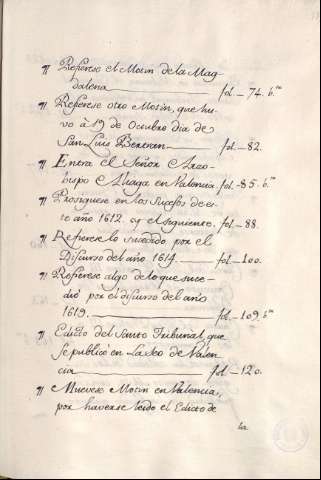 ¶ Refierese el Motin de la Mag-
dalena fol. 74. bto
¶ Refierese otro Motin, que hu-
vo à 19 de Octubre dia de
San Luis Bertran fol. 82.
¶ Entra el Señor Arzo-
bispo Aliaga en Valencia fol. 85. bto
¶ Prosiguese en los Sucesos de es-
te año 1612. y el siguiente. fol. 88.
¶ Refierese lo sucedido por el
Discurso del año 1614. fol. 100.
¶ Refierese algo de lo que suce-
diò por el discurso del año
1619. fol. 109 bto
¶ Edicto del Santo Tribunal, que
se publicò en la Seo de Valen-
cia fol. 120.
¶ Muevese Motin en Valencia,
por haverse leido el Edicto de
la